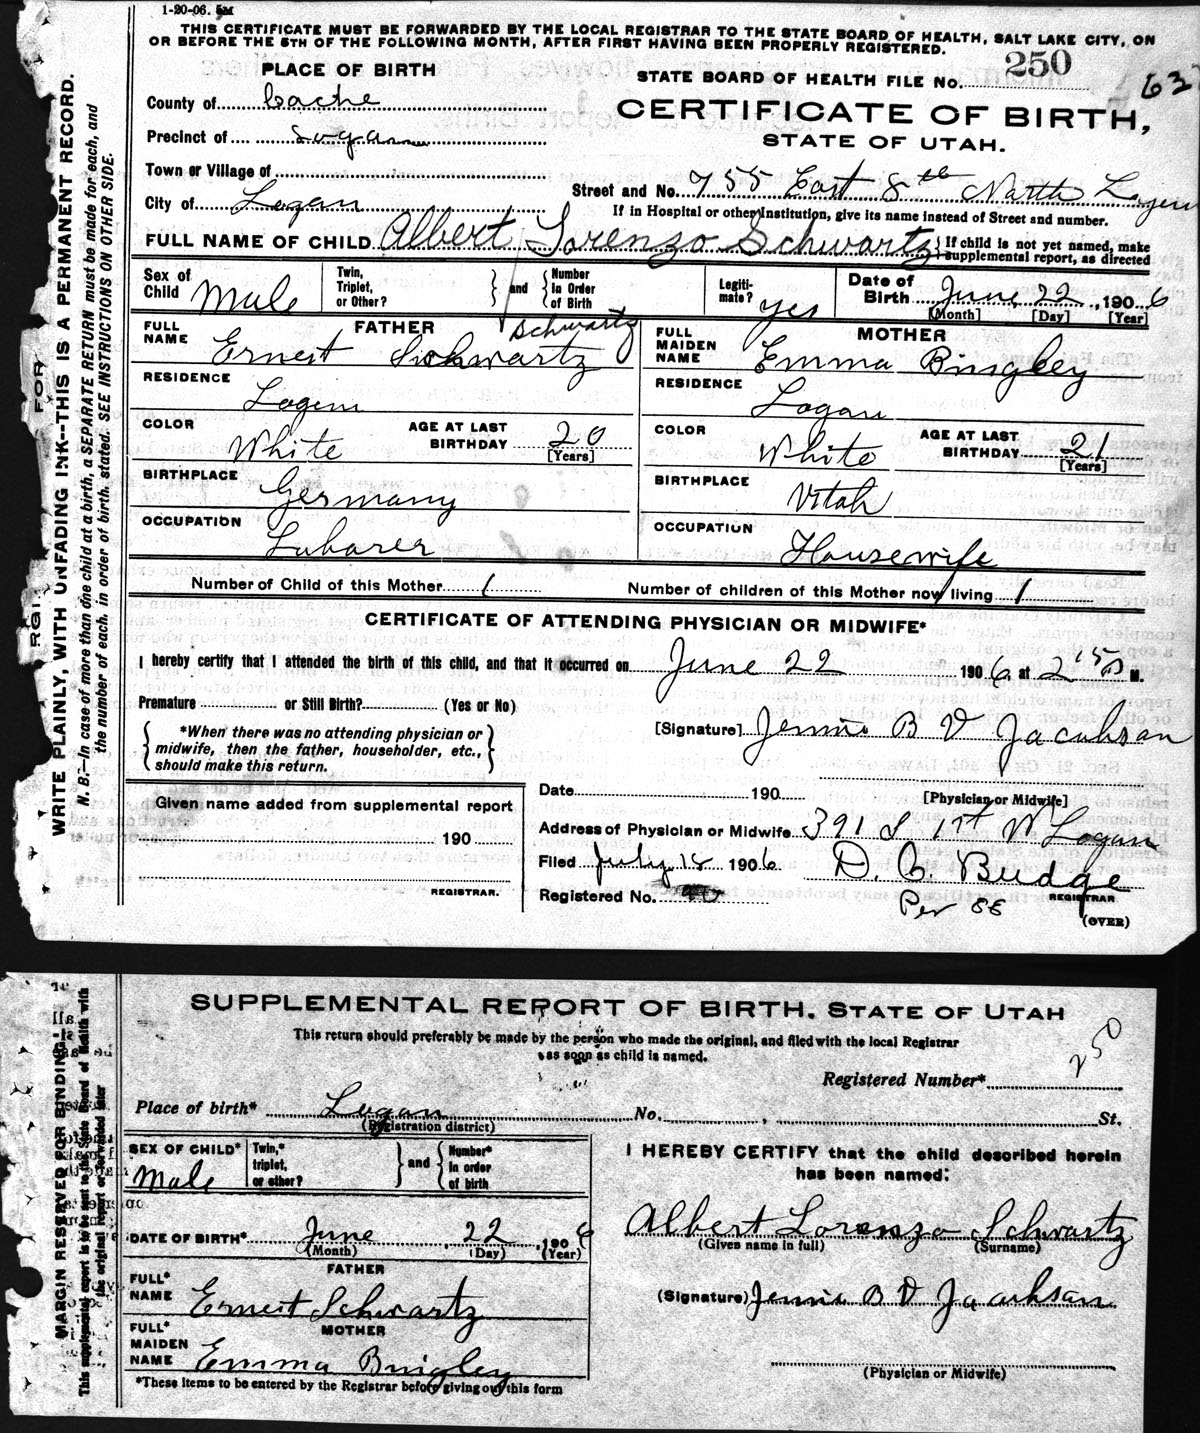 1-20-06. 5M
THIS CERTIFICATE MUST BE FORWARDED BY THE LOCAL REGISTRAR TO THE STATE BOARD OF HEALTH, SALT LAKE CITY, ON
OR BEFORE THE 5TH OF THE FOLLOWING MONTH, AFTER FIRST HAVING BEEN PROPERLY REGISTERED.
PLACE OF BIRTH
STATE BOARD OF HEALTH FILE No. 250
637
County of Cache
CERTIFICATE OF BIRTH,
Precinct of Logan
STATE OF UTAH.
Town or Village of
Street and No. 755 East 8th North Logan
City of Logan
If in Hospital or other Institution, give its name instead of Street and number.
FULL NAME OF CHILD Albert Lorenzo Schwartz { If child is not yet named, make supplemental report, as directed
Sex of Child Male
Twin, Triplet, or Other? } and { Number In Order of Birth
Legiti-mate? yes
Date of Birth June 22, 1906
[Month] [Day] [Year]
FATHER
FULL NAME Ernest Schwartz
Schwartz
RESIDENCE Logan
COLOR White
AGE AT LAST BIRTHDAY 20 [Years]
BIRTHPLACE Germany
OCCUPATION Laborer
MOTHER
FULL MAIDEN NAME Emma Bingley
RESIDENCE Logan
COLOR White
AGE AT LAST BIRTHDAY 21 [Years]
BIRTHPLACE Utah
OCCUPATION Housewife
Number of Child of this Mother 1 Number of children of this Mother now living 1
CERTIFICATE OF ATTENDING PHYSICIAN OR MIDWIFE*
I hereby certify that I attended the birth of this child, and that it occurred on June 22 1906, at 2 M.
Premature or Still Birth? (Yes or No)
[Signature] Jennie B V Jacobson
{ *When there was no attending physician or
midwife, then the father, householder, etc.,
should make this return. }
Date 190
[Physician or Midwife]
Given name added from supplemental report
190
REGISTRAR.
Address of Physician or Midwife 391 S 1st W Logan
Filed July 18 1906
D. C. Budge
REGISTRAR
Registered No.
Per
(OVER)
WRITE PLAINLY, WITH UNFADING INK--THIS IS A PERMANENT RECORD.
N. B.--In case of more than one child at a birth, a SEPARATE RETURN must be made for each, and
the number of each, in order of birth, stated. SEE INSTRUCTIONS ON OTHER SIDE.
SUPPLEMENTAL REPORT OF BIRTH. STATE OF UTAH
This return should preferably be made by the person who made the original, and filed with the local Registrar
as soon as child is named.
250
Registered Number*
Place of birth* Logan No. , St.
(Registration district)
SEX OF CHILD* Male
Twin,* triplet, or other? } and { Number* In order of birth
I HEREBY CERTIFY that the child described herein
has been named:
DATE OF BIRTH* June 22, 1906
(Month) (Day) (Year)
Albert Lorenzo Schwartz
(Given name in full) (Surname)
FATHER
FULL* NAME Ernest Schwartz
(Signature) Jennie B V Jacobson
MOTHER
FULL* MAIDEN NAME Emma Bingley
(Physician or Midwife)
*These items to be entered by the Registrar before giving out this form
MARGIN RESERVED FOR BINDING.
This supplemental report is to be sent to the State Board of Health with
the original report or forwarded later